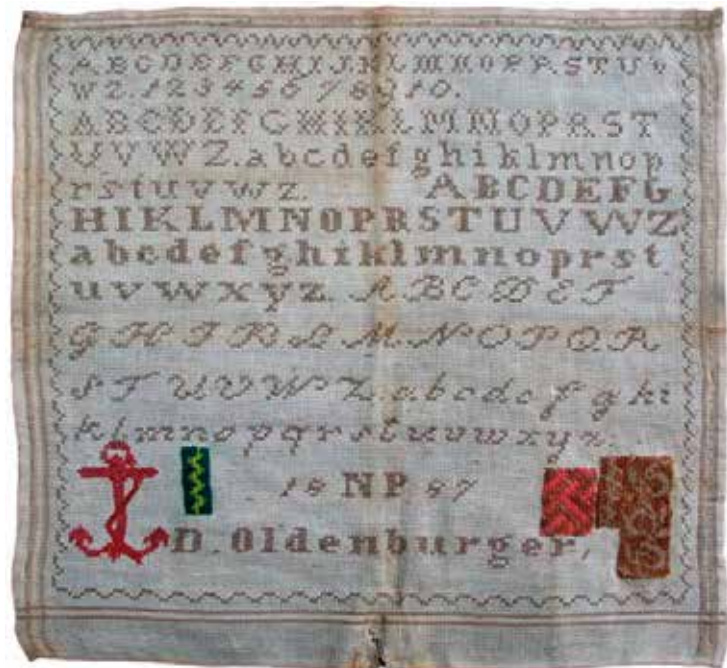 A B C D E F G H I J K L M N O P R S T U V
W Z . 1 2 3 4 5 6 7 8 9 1 0 .
A B C D E F G H I K L M N O P R S T
U V W Z . a b c d e f g h i k l m n o p
r s t u v w z . A B C D E F G
H I K L M N O P R S T U V W Z
a b c d e f g h i k l m n o p r s t
u v w x y z . A B C D E F
G H I K L M N O P Q R
S T U V W Z . a b c d e f g h i
k l m n o p q r s t u v w x y z .
18 N P 87
D. Oldenburger,